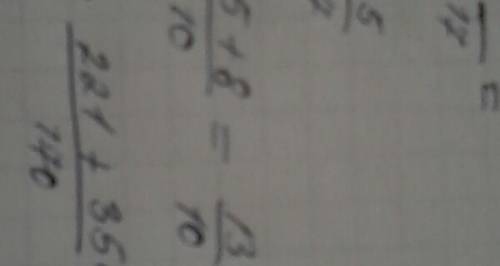 17 =
5
5+8 / 10 = 13 / 10
221 + 35 / 170